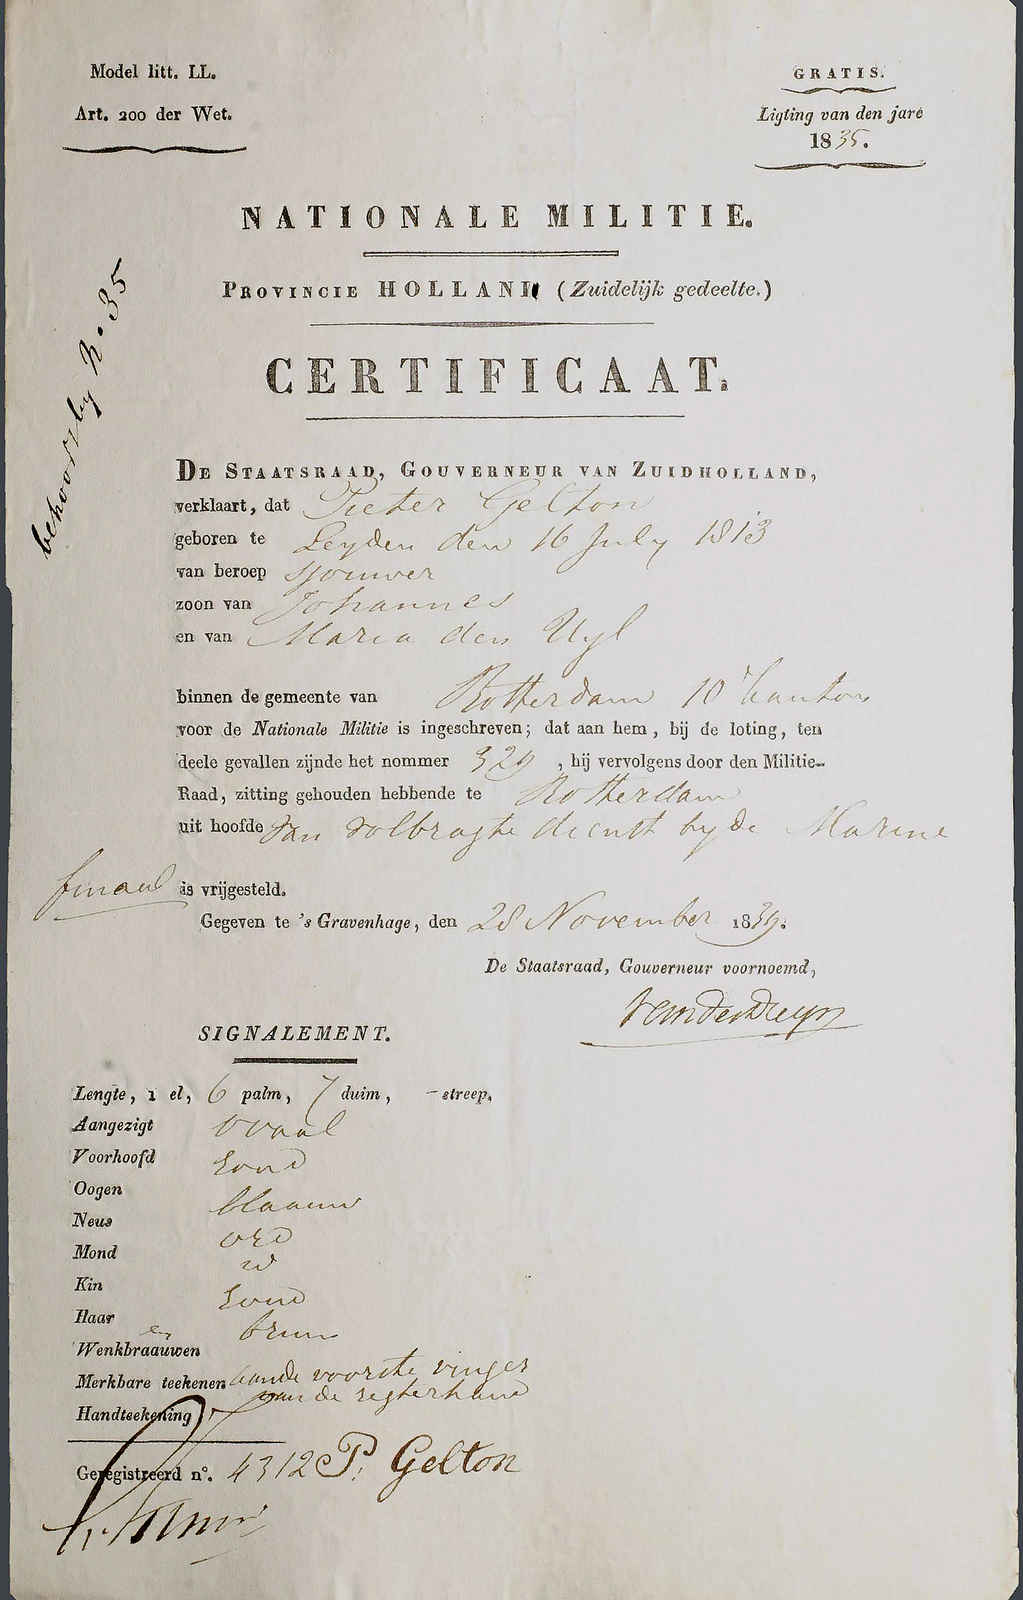 Model litt. LL.
Art. 200 der Wet.
GRATIS.
Ligting van den jare
1835.
behoort by No 35
NATIONALE MILITIE.
PROVINCIE HOLLAND (Zuidelijk gedeelte.)
CERTIFICAAT.
DE STAATSRAAD, GOUVERNEUR VAN ZUIDHOLLAND,
verklaart, dat Pieter Gelton
geboren te Leyden den 16 July 1813
van beroep sjouwer
zoon van Johannes
en van Maria den Uyl
binnen de gemeente van Rotterdam 10e Canton
voor de Nationale Militie is ingeschreven; dat aan hem, bij de loting, ten
deele gevallen zijnde het nommer 329, hij vervolgens door den Militie-
Raad, zitting gehouden hebbende te Rotterdam
uit hoofde van volbragte dienst by de Marine
finaal is vrijgesteld.
Gegeven te 's Gravenhage, den 28 November 1839.
De Staatsraad, Gouverneur voornoemd,
van der Duyn
SIGNALEMENT.
Lengte, 1 el, 6 palm, 7 duim, - streep.
Aangezigt ovaal
Voorhoofd rond
Oogen blaauw
Neus ord
Mond id
Kin rond
Haar bruin
en
Wenkbraauwen
Merkbare teekenen aan de voorste vinger
van de regterhand
Handteekening
Geregistreerd no. 4312 P. Gelton